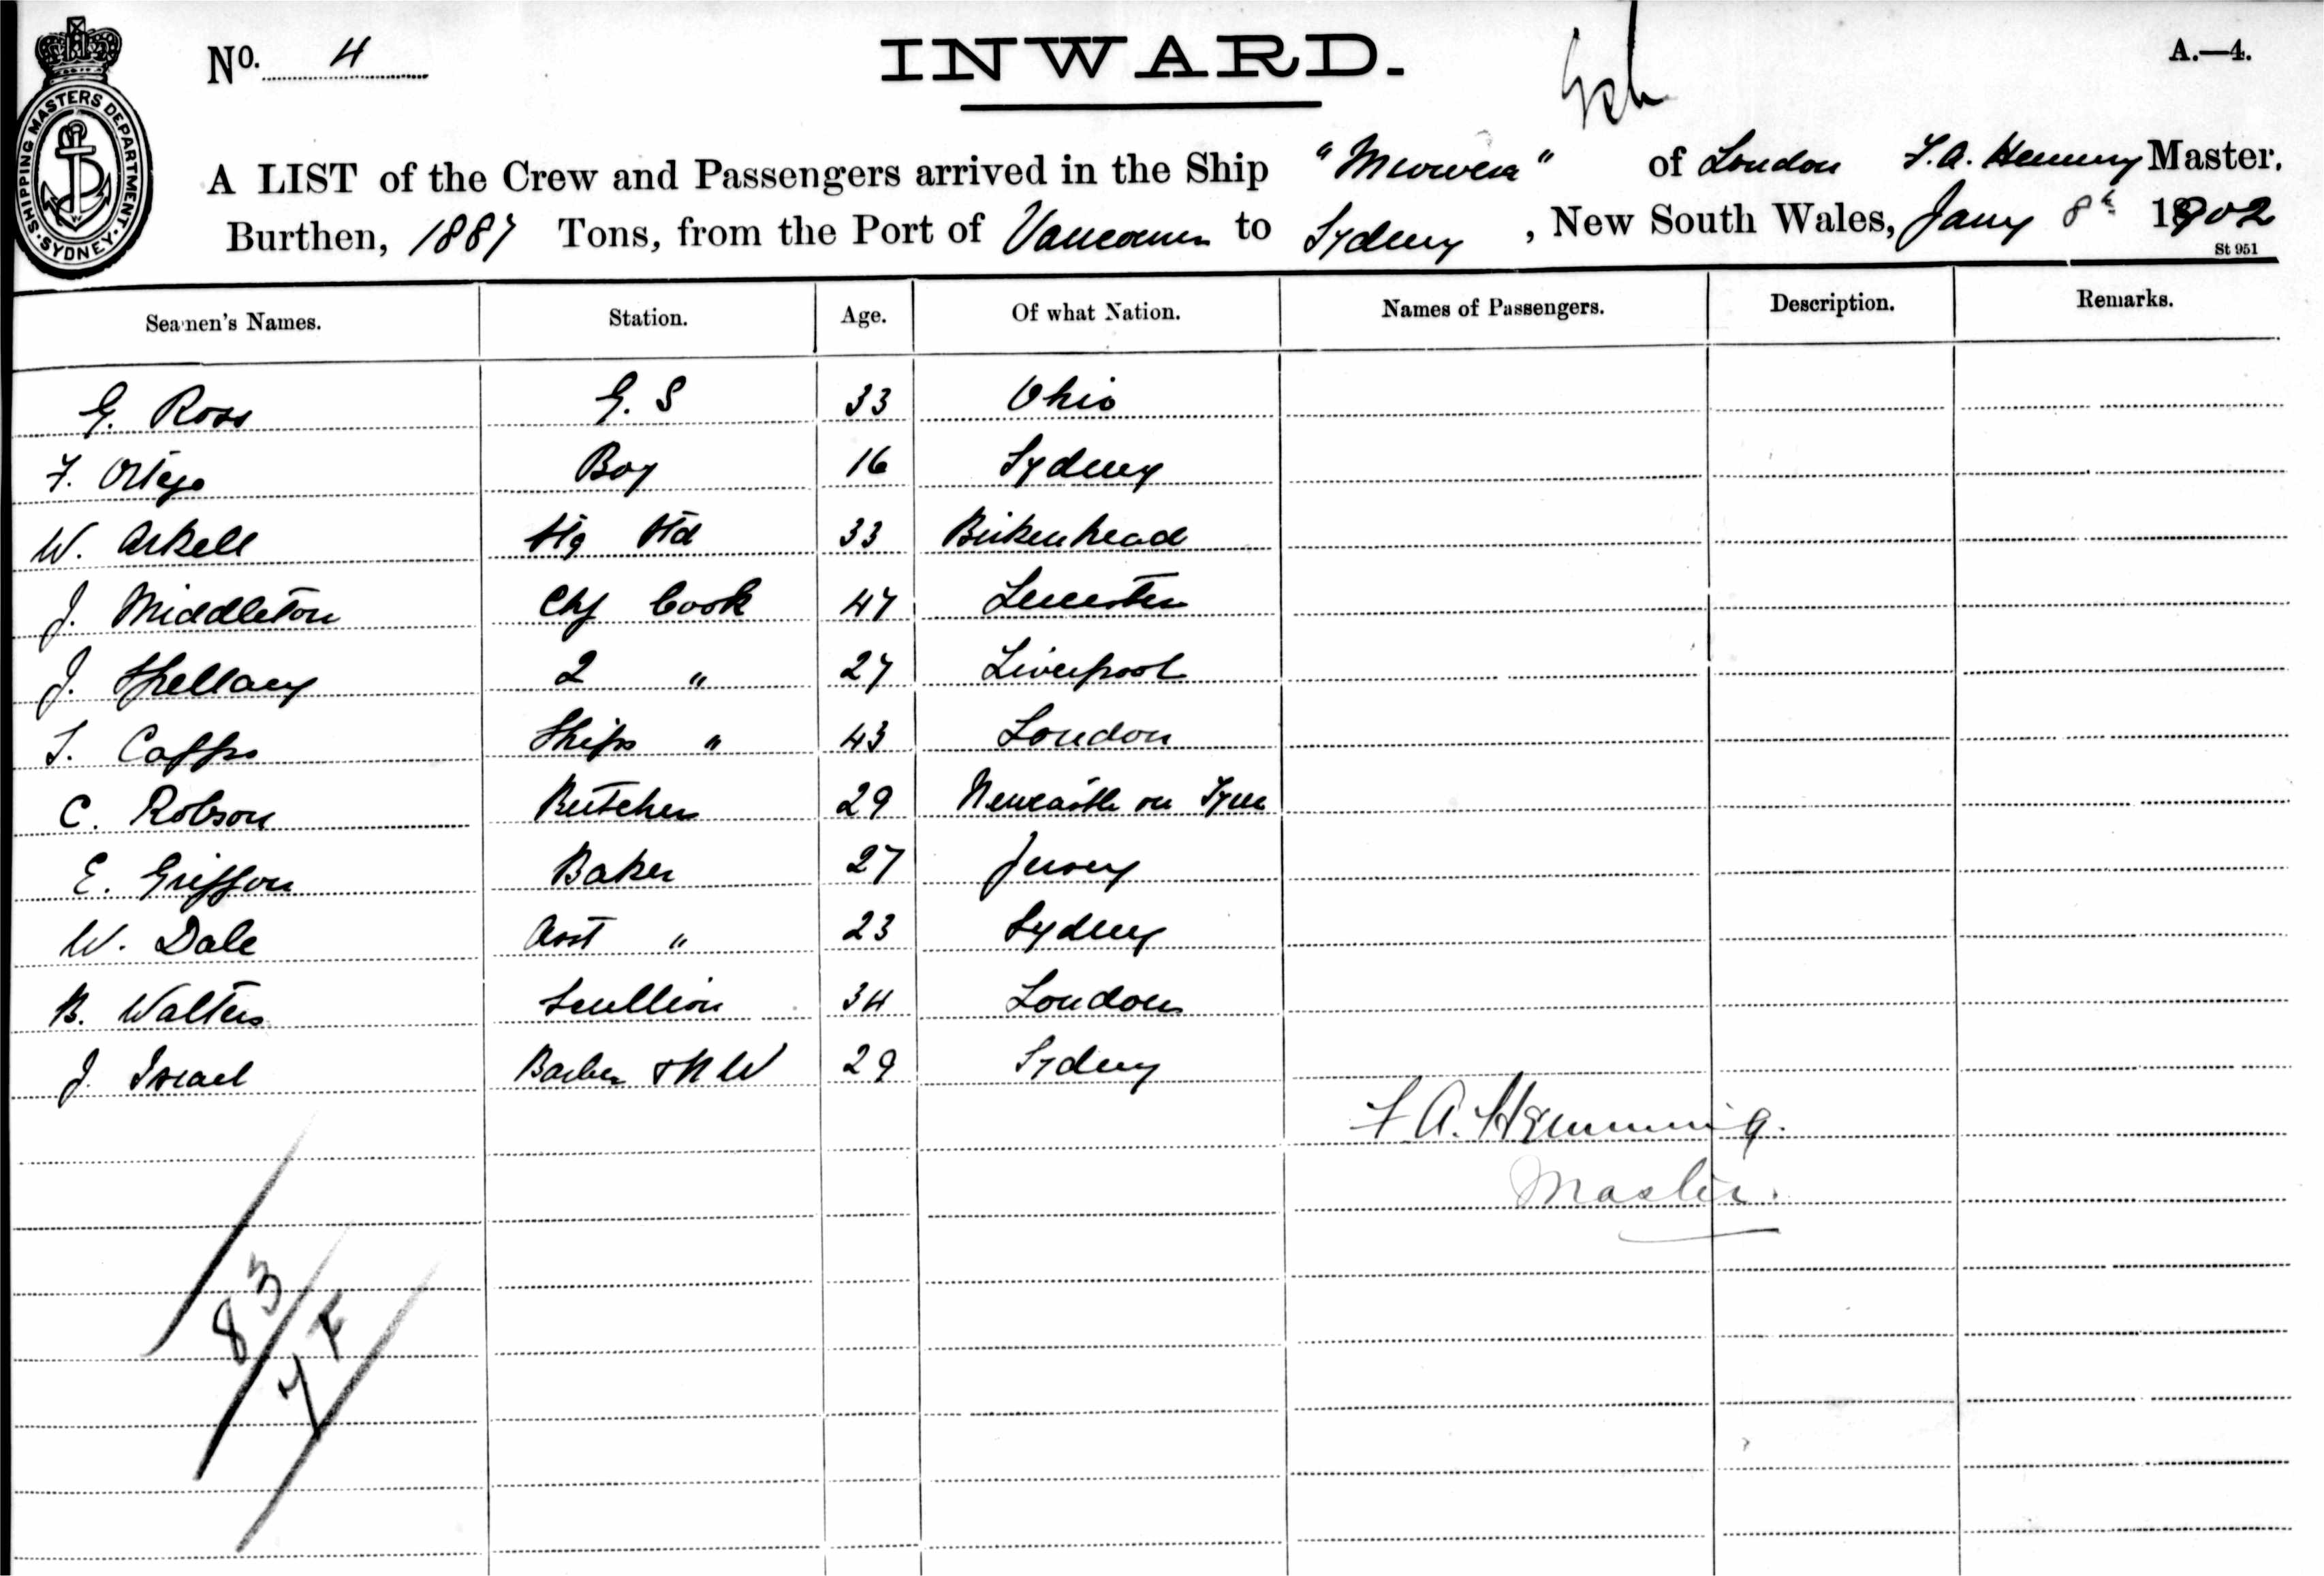 SHIPPING MASTERS DEPARTMENT. SYDNEY.
No. 4
INWARD.
A.—4.
A LIST of the Crew and Passengers arrived in the Ship "Miowera" of London F. A. Hemming Master.
Burthen, 1887 Tons, from the Port of Vancouver to Sydney, New South Wales, Jany 8th 1902
St 951
Seamen's Names. Station. Age. Of what Nation. Names of Passengers. Description. Remarks.
G. Ross G. S 33 Ohio
F. Ortego Boy 16 Sydney
W. Arkell Stg Std 33 Birkenhead
J. Middleton Chf Cook 47 Leicester
J. Shellary 2 " 27 Liverpool
Capps Ships " 43 London
C. Robson Butcher 29 Newcastle on Tyne
E. Griffon Baker 27 Jersey
W. Dale Asst " 23 Sydney
B. Walters Scullion 34 London
J. Israel Barber & N W 29 Sydney
F A. Hemming.
Master.
83